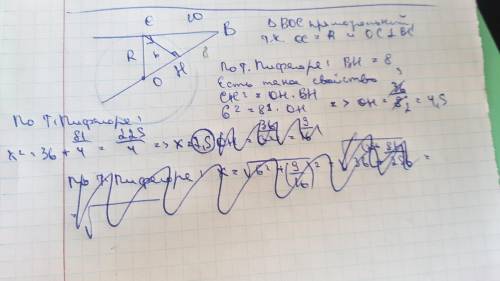 C 10
B
R 6 8
H
O
Δ BOC прямоугольный,
т.к. OC = R и OC ⊥ BC
По т. Пифагора: BH = 8,
Есть такое свойство
CH² = OH · BH
6² = 8 · OH => OH = 36/8 = 4,5
По т. Пифагора:
x² = 36 + 81/4 = 225/4 => x = 7,5
По т. Пифагора: x =